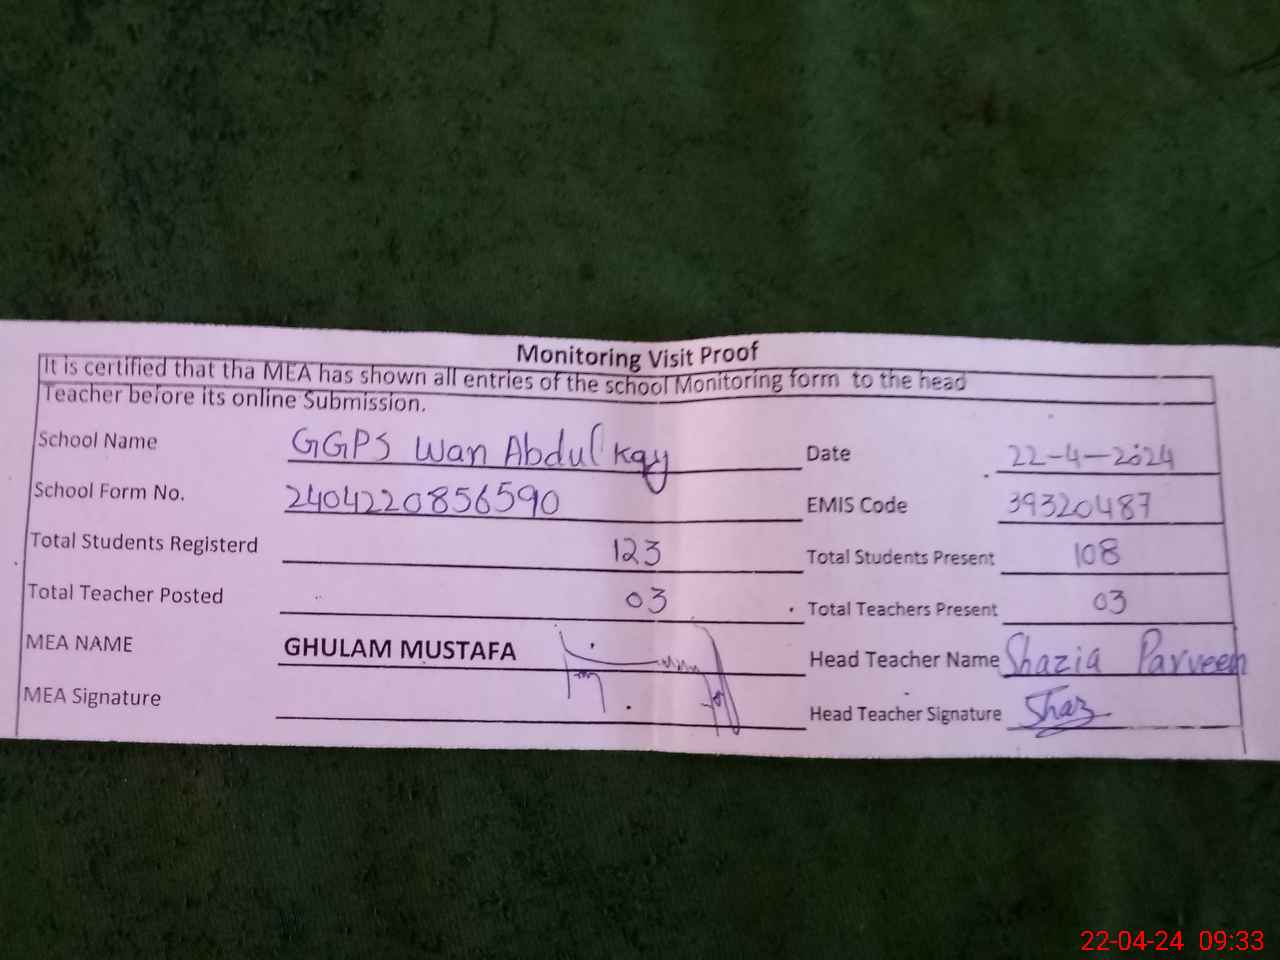 Monitoring Visit Proof
It is certified that tha MEA has shown all entries of the school Monitoring form to the head
Teacher before its online Submission.
School Name GGPS Wan Abdul kay Date 22-4-2024
School Form No. 2404220856590 EMIS Code 39320487
Total Students Registerd 123 Total Students Present 108
Total Teacher Posted 03 Total Teachers Present 03
MEA NAME GHULAM MUSTAFA Head Teacher Name Shazia Parveen
MEA Signature Head Teacher Signature Shaz
22-04-24 09:33